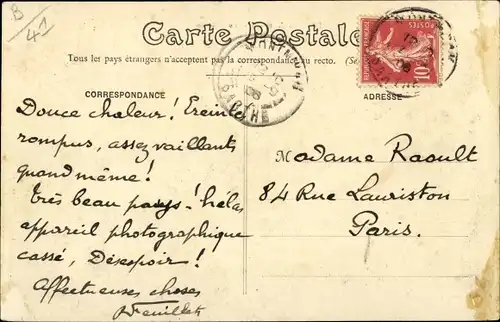 B
41
Carte Postale
Tous les pays étrangers n'acceptent pas la correspondance au recto. (Se
CORRESPONDANCE
ADRESSE
RÉPUBLIQUE FRANÇAISE
POSTES
10
SARTHE
Douce chaleur! Ereintés
rompus, assez vaillants
quand même!
Très beau pays! hélas
appareil photographique
cassé, Désespoir!
Affectueuses choses
Feuillet
Madame Raoult
84 Rue Lauriston
Paris.